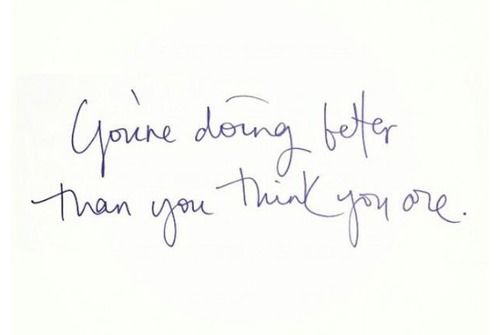 You're doing better
than you think you are.